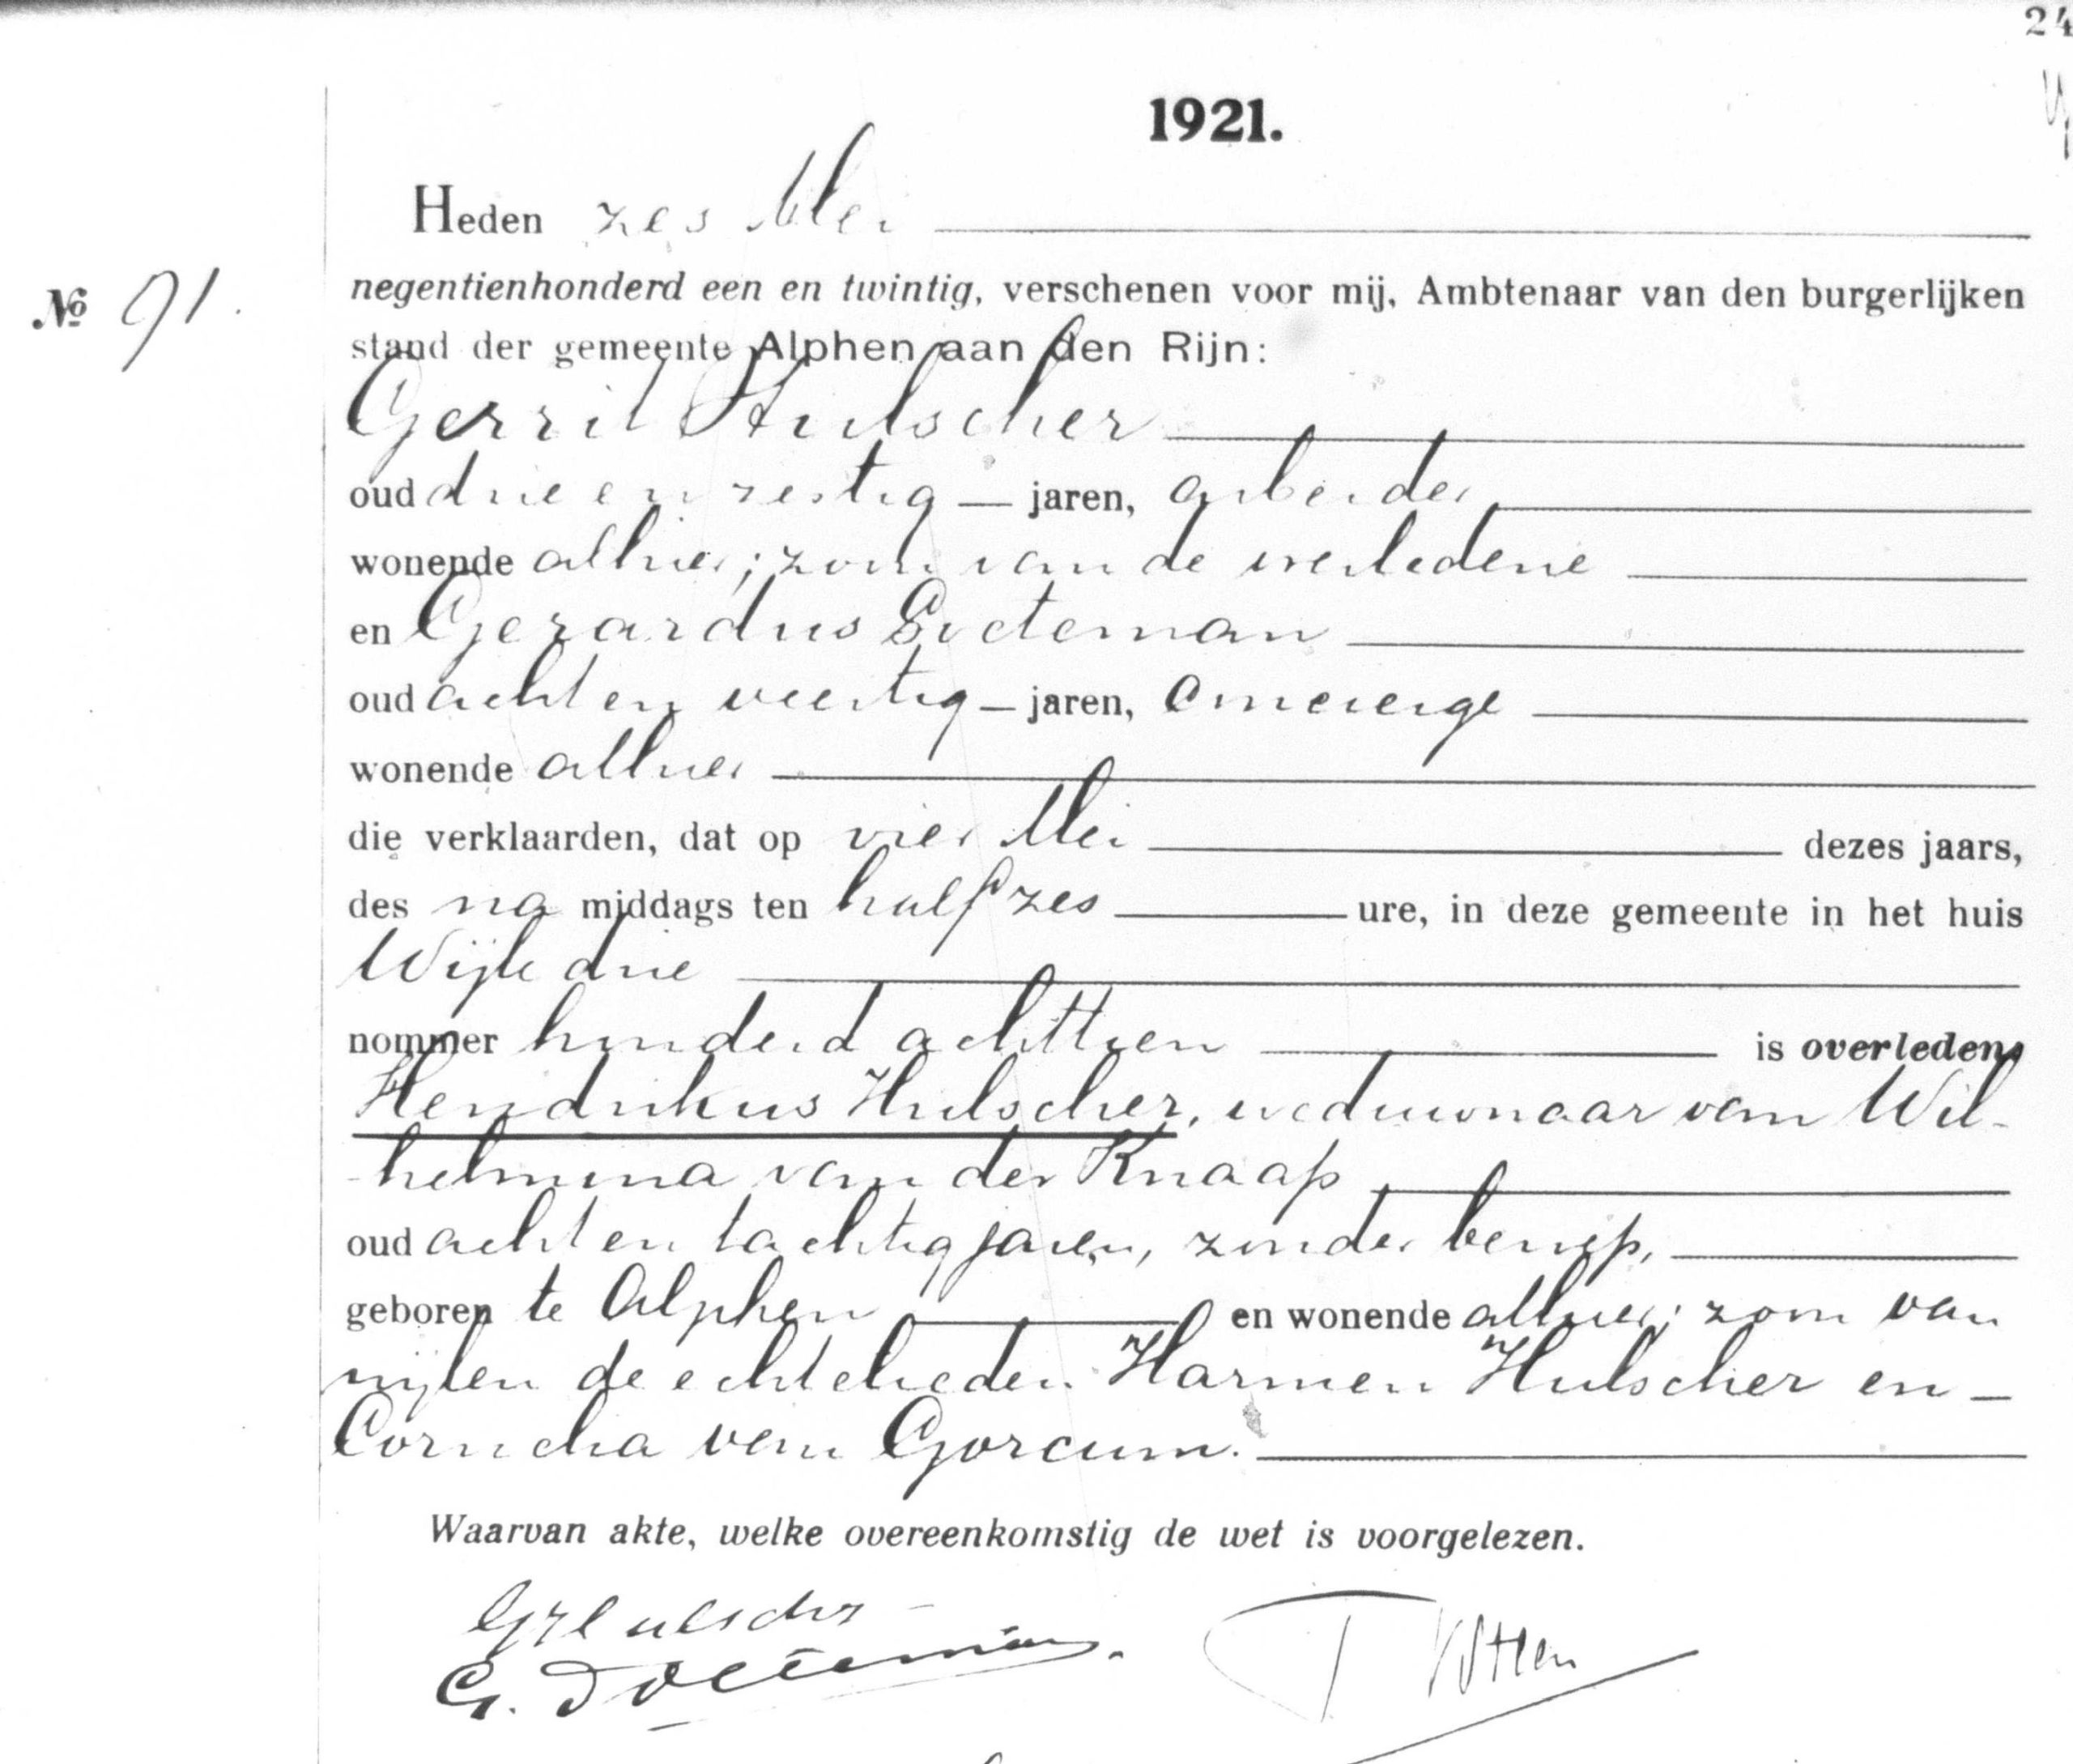 24
1921.
Heden zes Mei
negentienhonderd een en twintig, verschenen voor mij, Ambtenaar van den burgerlijken
No 91.
stand der gemeente Alphen aan den Rijn:
Gerrit Hulscher
oud drie en zestig — jaren, arbeider
wonende alhier; zoon van de overledene
en Gerardus
oud acht en veertig — jaren, concierge
wonende alhier
die verklaarden, dat op vier Mei dezes jaars,
des na middags ten half zes ure, in deze gemeente in het huis
Wijk drie
nommer honderd achttien is overleden,
Hendrikus Hulscher, weduwnaar van Wil-
-helmina van der Knaap
oud acht en tachtig jaren, zonder beroep,
geboren te Alphen en wonende alhier; zoon van
wijlen de echtelieden Harmen Hulscher en —
Cornelia van Gorcum.
Waarvan akte, welke overeenkomstig de wet is voorgelezen.
G Hulscher
G.